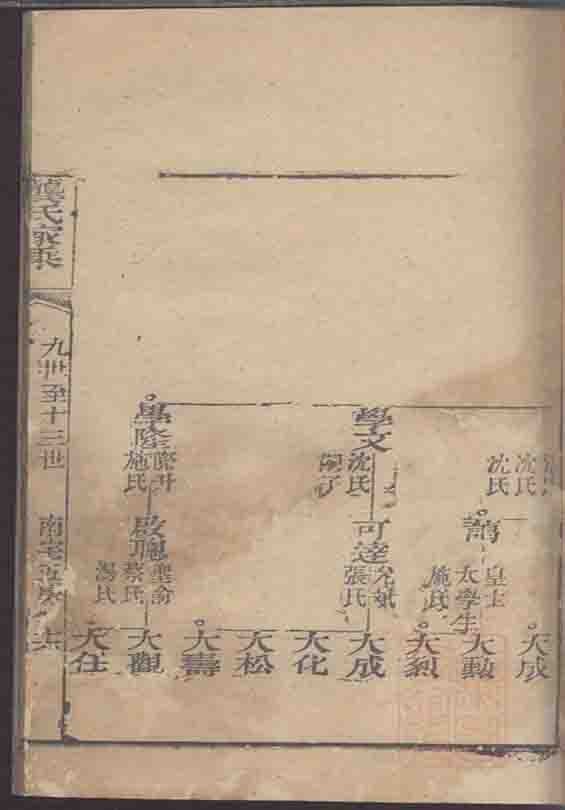 沈氏
沈氏
皇士
太學生
施氏
大成
大勳
大烈
學文
沈氏
可達
允斌
張氏
大成
大化
大松
大壽
學隆
際升
施氏
啟鳳
聖俞
蔡氏
湯氏
大觀
大任
龔氏家乘
九世至十三世
南宅